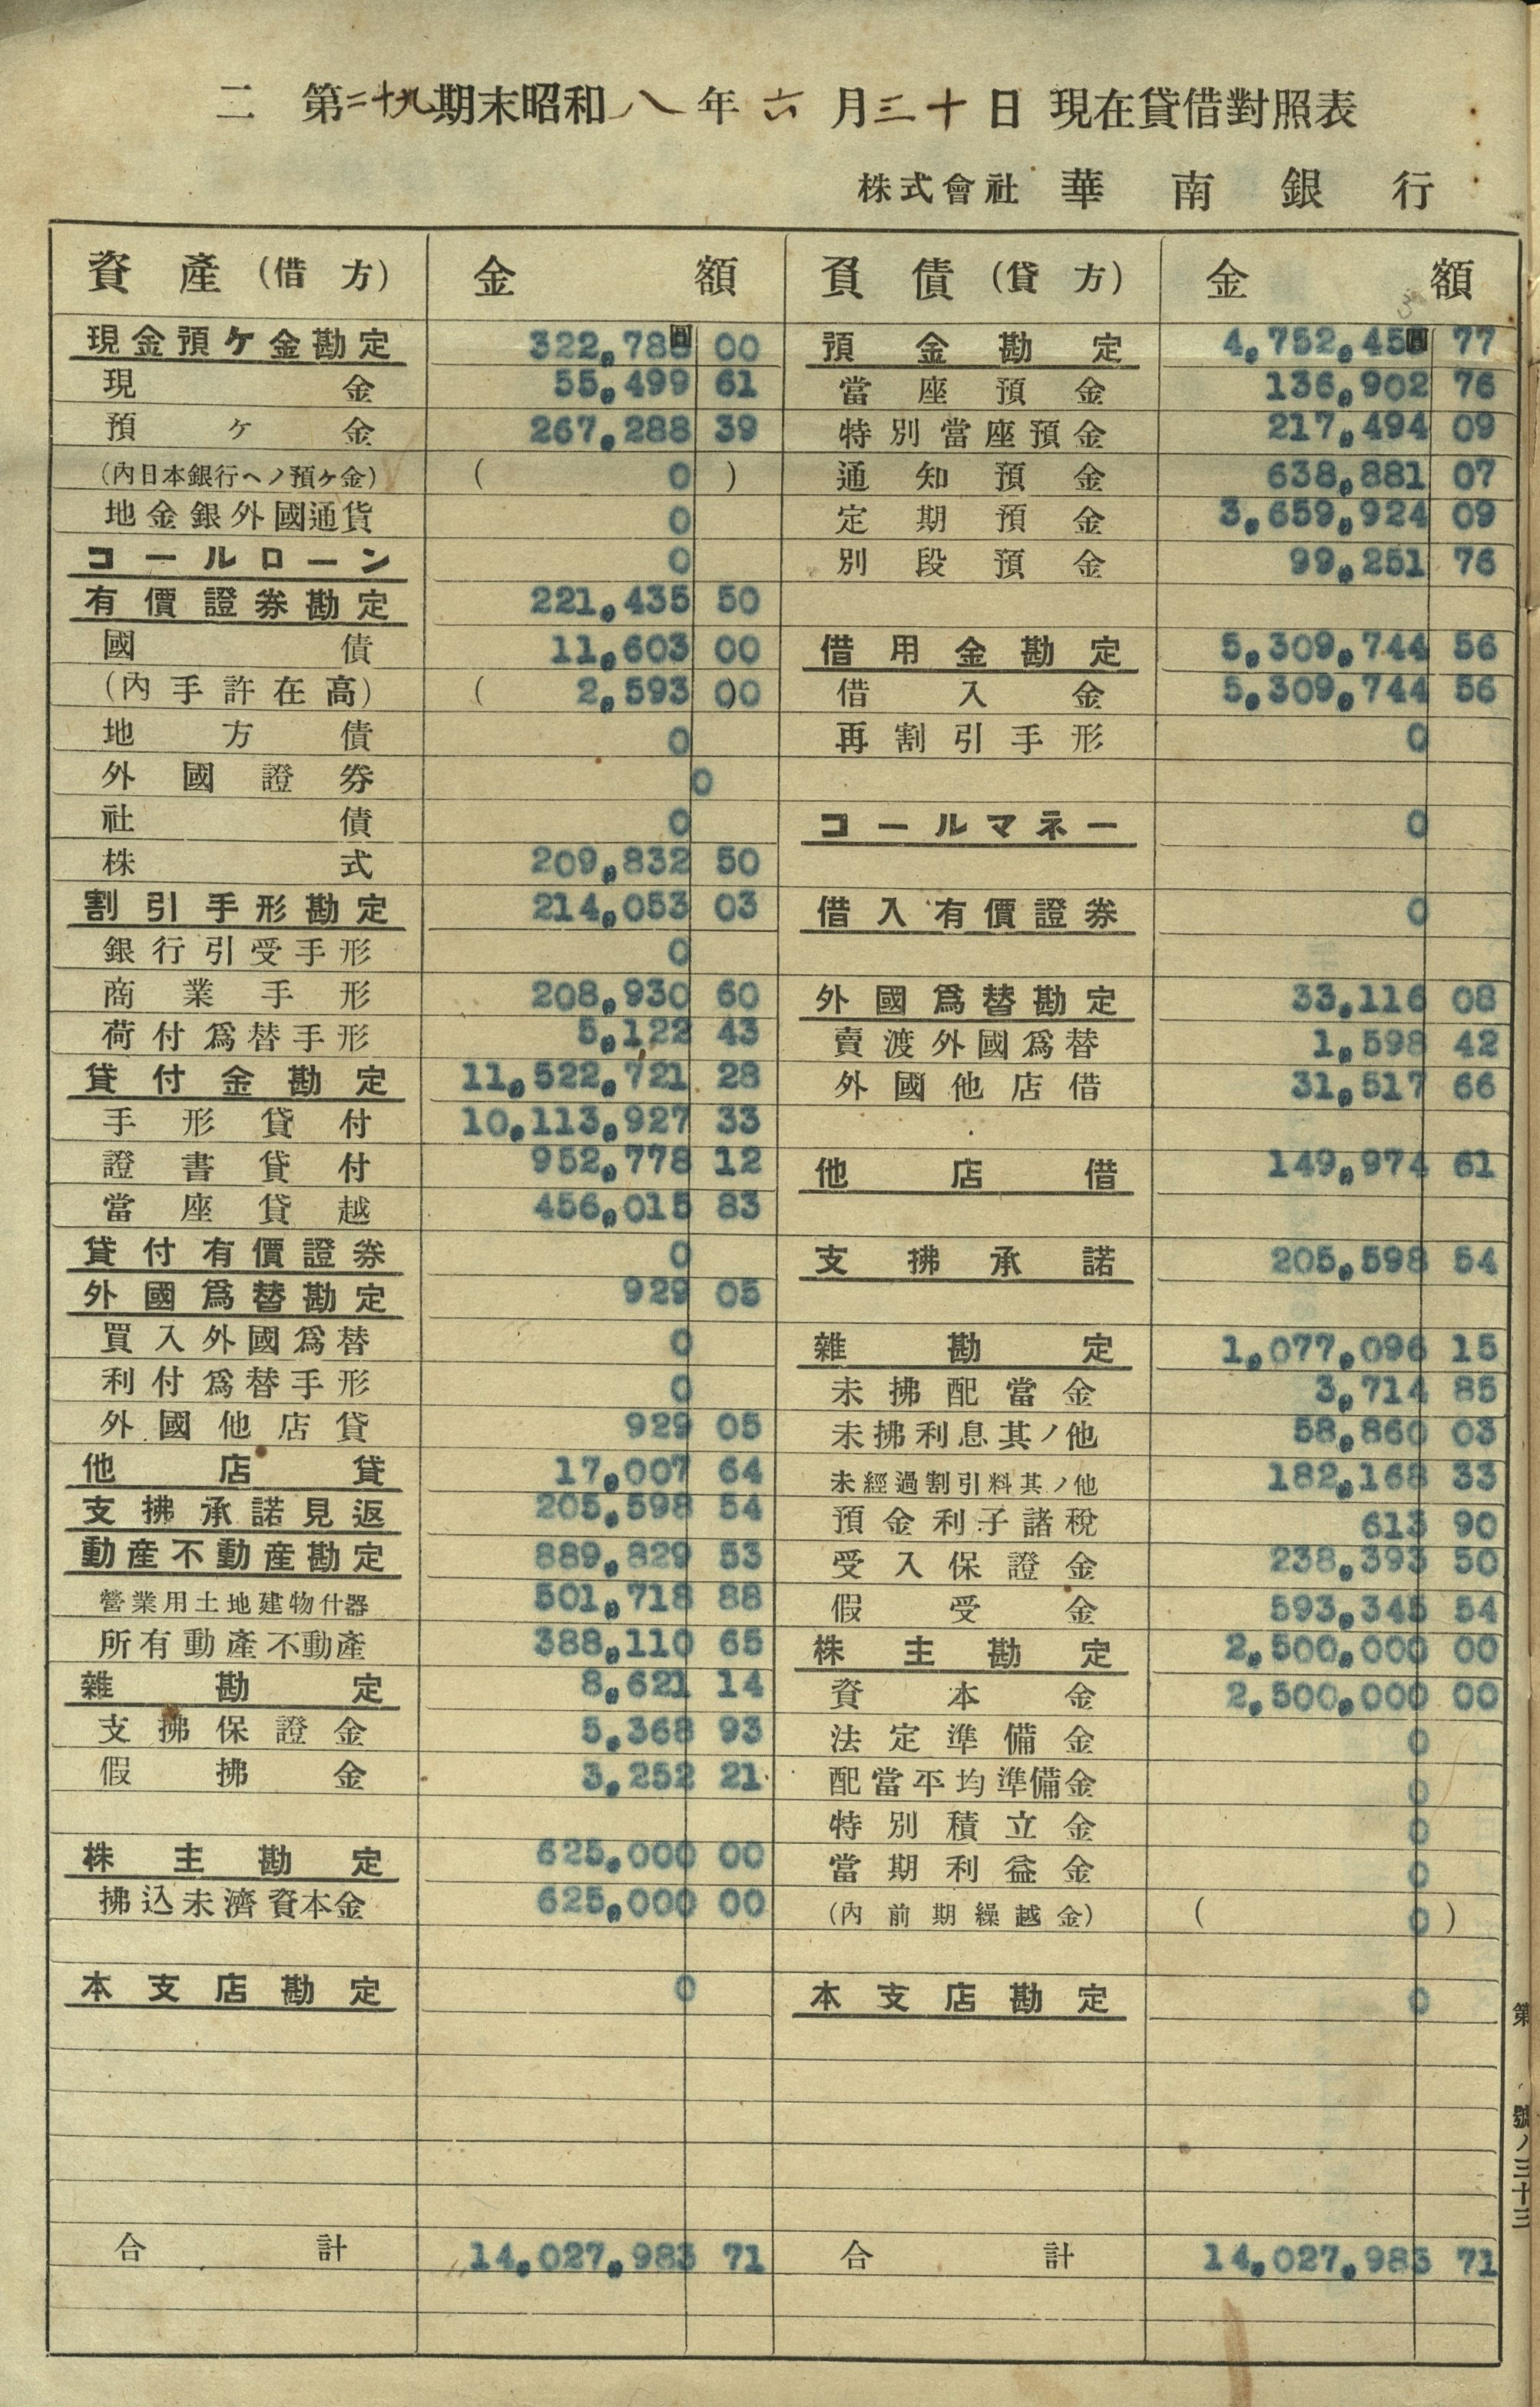 二 第二十九期末昭和八年六月三十日 現在貸借對照表
株式會社 華南銀行
資產(借方) 金額 負債(貸方) 金額
現金預ケ金勘定 322,788圓00 預金勘定 4,752,453圓77
現金 55,499 61 當座預金 136,902 76
預ケ金 267,288 39 特別當座預金 217,494 09
(內日本銀行ヘノ預ヶ金) ( 0 ) 通知預金 638,881 07
地金銀外國通貨 0 定期預金 3,659,924 09
コールローン 0 別段預金 99,251 76
有價證券勘定 221,435 50
國債 11,603 00 借用金勘定 5,309,744 56
(內手許在高) ( 2,593 00 ) 借入金 5,309,744 56
地方債 0 再割引手形 0
外國證券 0
社債 0 コールマネー 0
株式 209,832 50
割引手形勘定 214,053 03 借入有價證券 0
銀行引受手形 0
商業手形 208,930 60 外國爲替勘定 33,116 08
荷付爲替手形 5,122 43 賣渡外國爲替 1,598 42
貸付金勘定 11,522,721 28 外國他店借 31,517 66
手形貸付 10,113,927 33
證書貸付 952,778 12 他店借 149,974 61
當座貸越 456,015 83
貸付有價證券 0 支拂承諾 205,598 54
外國爲替勘定 929 05
買入外國爲替 0 雜勘定 1,077,096 15
利付爲替手形 0 未拂配當金 3,714 85
外國他店貸 929 05 未拂利息其ノ他 58,860 03
他店貸 17,007 64 未經過割引料其ノ他 182,168 33
支拂承諾見返 205,598 54 預金利子諸稅 613 90
動產不動產勘定 889,829 53 受入保證金 238,393 50
營業用土地建物什器 501,718 88 假受金 593,345 54
所有動產不動產 388,110 65 株主勘定 2,500,000 00
雜勘定 8,621 14 資本金 2,500,000 00
支拂保證金 5,368 93 法定準備金 0
假拂金 3,252 21 配當平均準備金 0
特別積立金 0
株主勘定 625,000 00 當期利益金 0
拂込未濟資本金 625,000 00 (內前期繰越金) ( 0 )
本支店勘定 0 本支店勘定 0
合計 14,027,983 71 合計 14,027,983 71
第 號ノ三十三